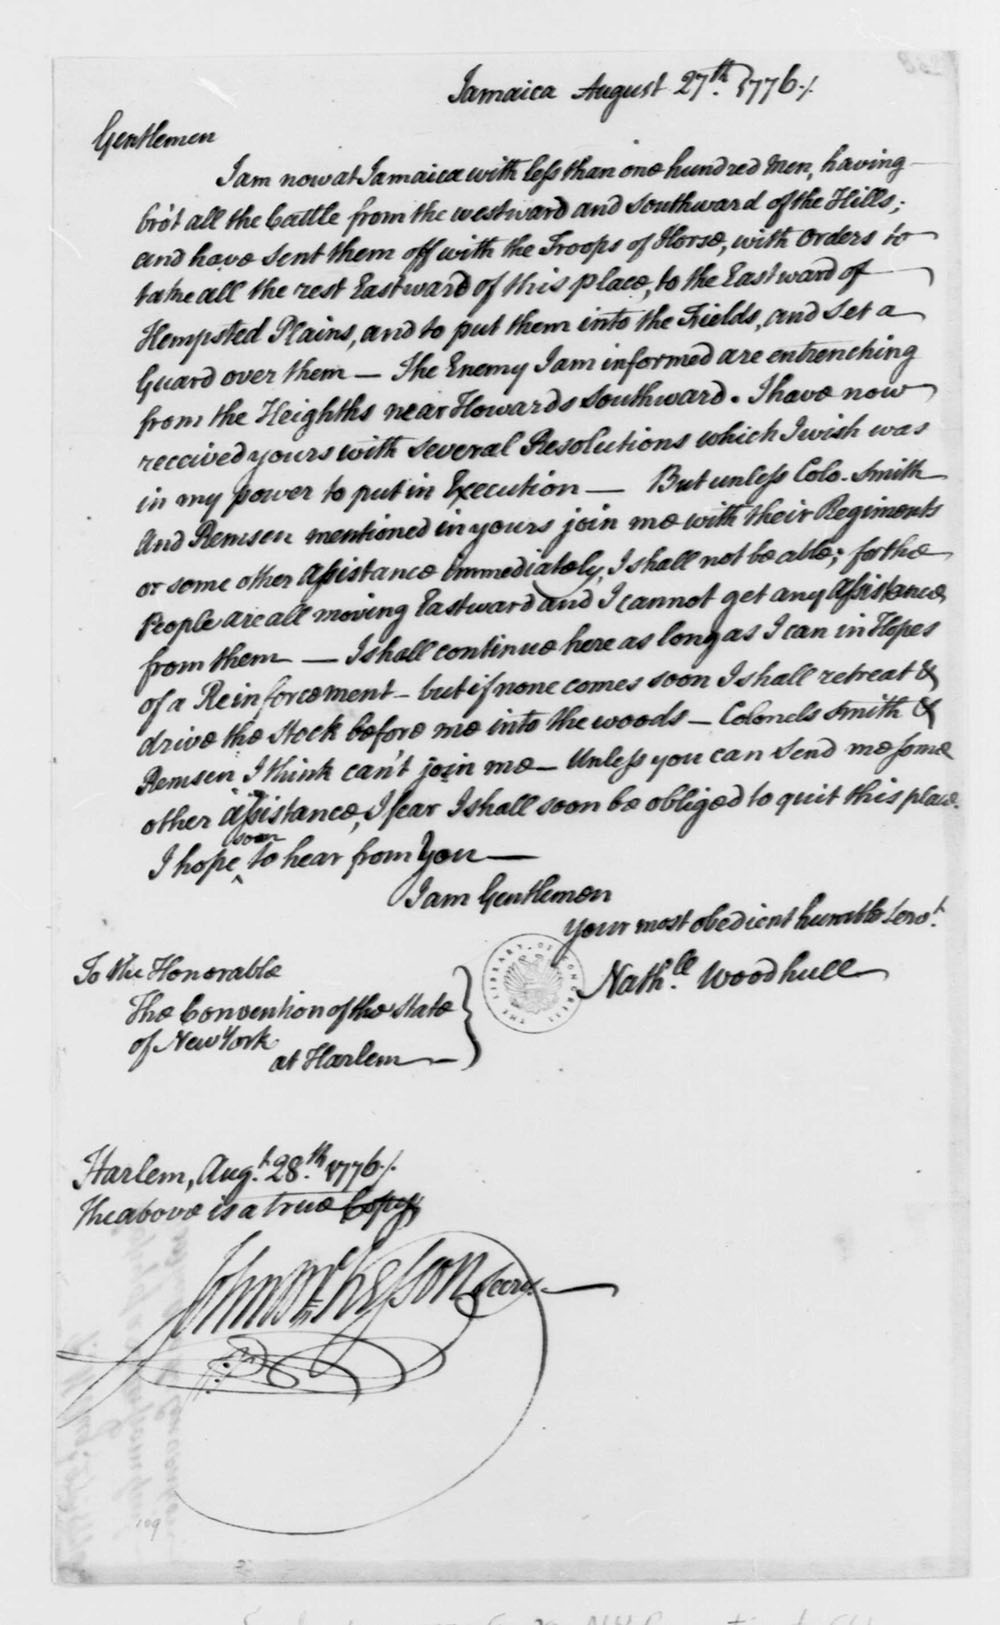 Jamaica August 27th. 1776./.
Gentlemen
I am now at Jamaica with less than one hundred Men, having
bro't all the Cattle from the westward and southward of the Hills;
and have sent them off with the Troops of Horse, with orders to
take all the rest Eastward of this place, to the Eastward of
Hempsted Plains, and to put them into the Fields, and set a
Guard over them — The Enemy I am informed are entrenching
from the Heighths near Howards southward. I have now
received yours with several Resolutions which I wish was
in my power to put in Execution — But unless Colo. Smith
and Remsen mentioned in yours join me with their Regiments
or some other Assistance immediately, I shall not be able; for the
People are all moving Eastward and I cannot get any Assistance
from them — I shall continue here as long as I can in Hopes
of a Reinforcement – but if none comes soon I shall retreat &
drive the Stock before me into the woods – Colonels Smith &
Remsen I think can't join me – Unless you can send me some
other Assistance, I fear I shall soon be obliged to quit this place.
soon
I hope ^ to hear from You —
I am Gentlemen
Your most obedient humble Servt.
Nathll. Woodhull
To the Honorable
The Convention of the State
of New York
at Harlem
THE LIBRARY OF CONGRESS
Harlem, Augt. 28th. 1776./.
The above is a true Copy
John McKesson Secry.
109